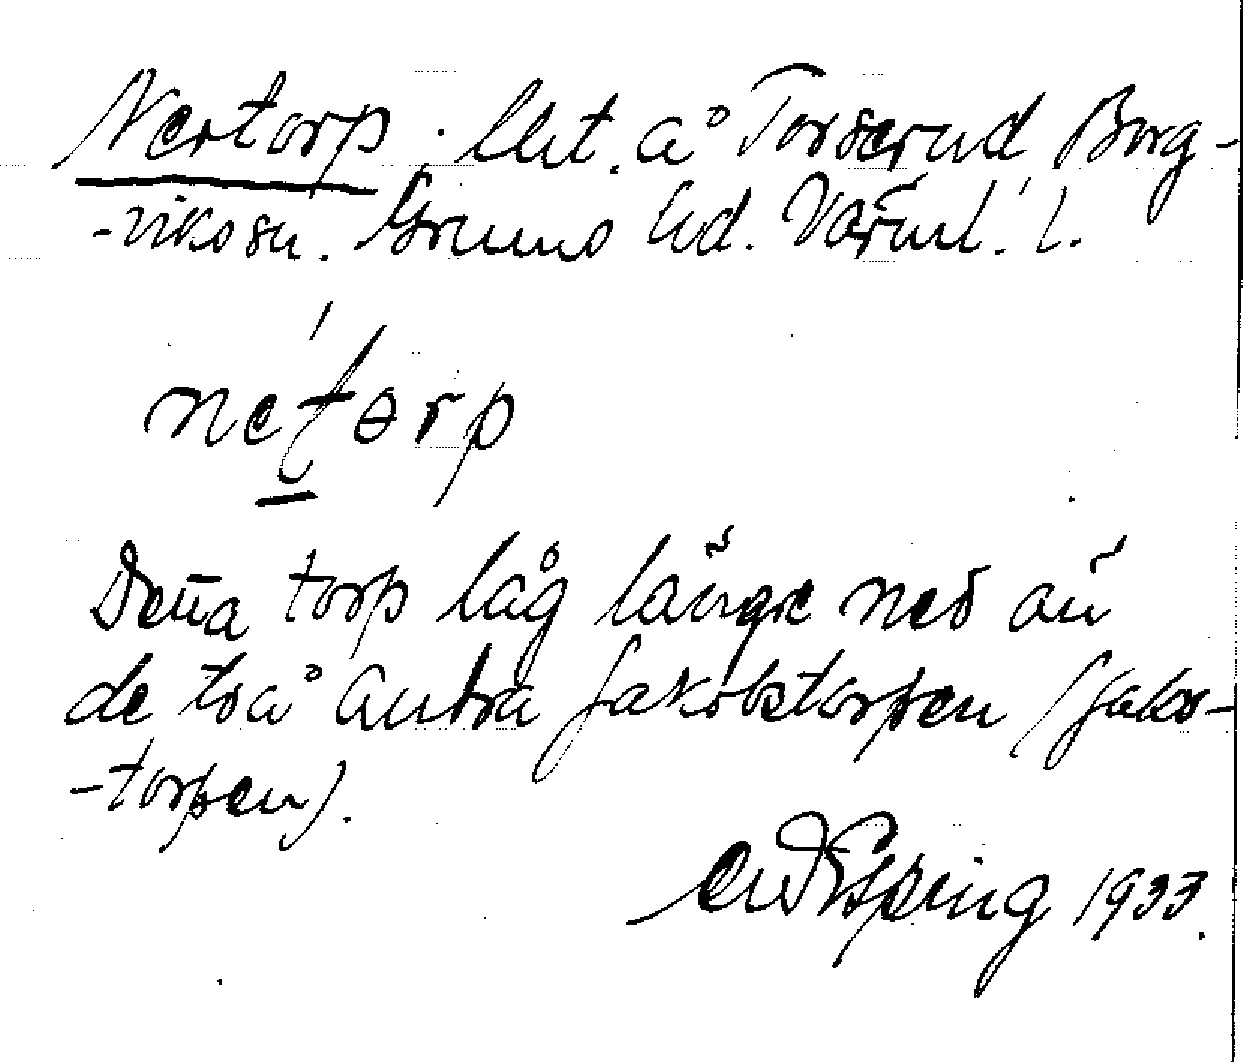 Nertorp. lht. å Torserud Borg-
-vikssn. Grums hd. Värml. l.
netərp
Detta torp låg längre ned än
de två andra Jakobstorpen (Jaks-
-torpen).
Esping 1933.